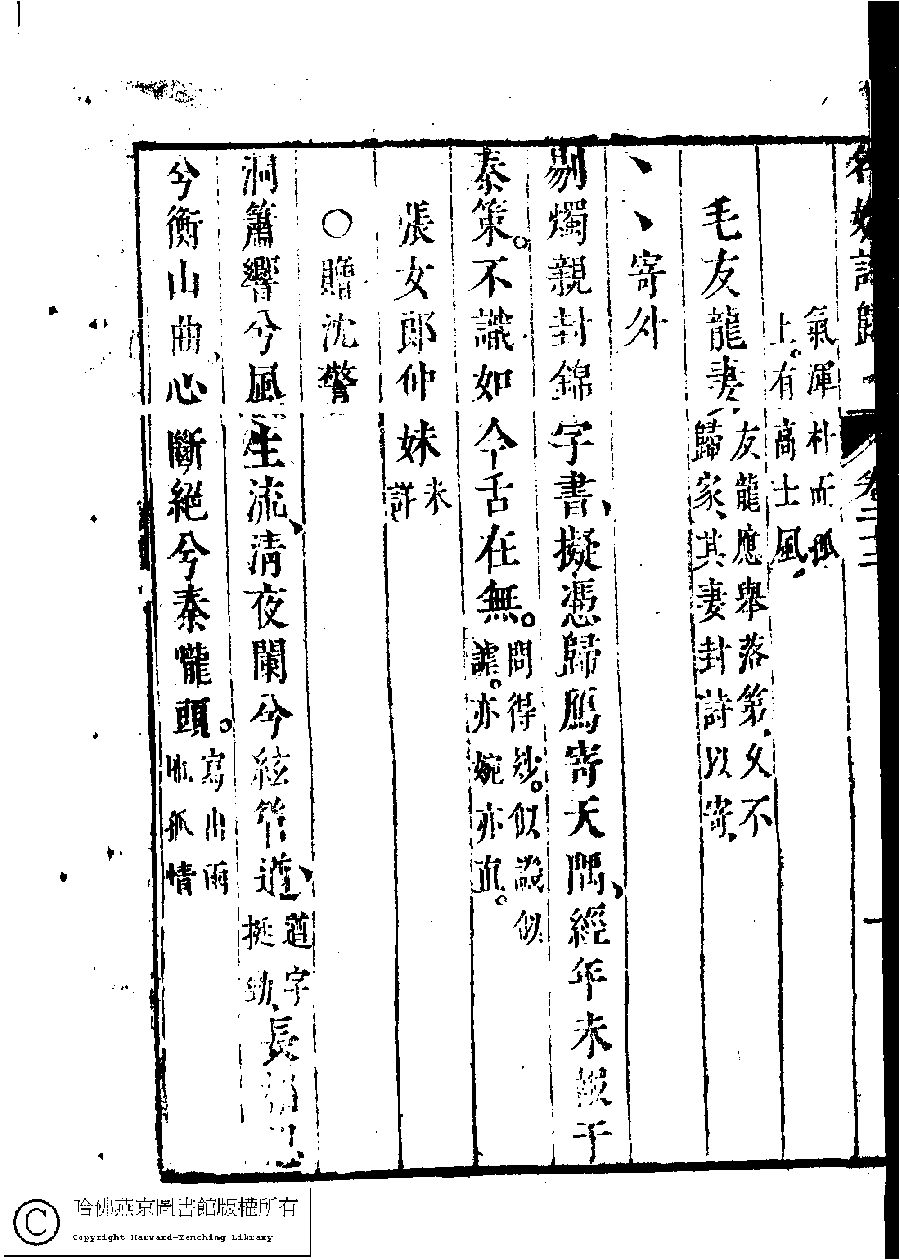 名媛詩歸 卷
氣渾朴而孤
上。有高士風、
毛友龍妻 友龍應舉落第、久不
歸家、其妻封詩以寄、
寄外
剔燭親封錦字書、擬憑歸鴈寄天隅、經年未報干
秦策。不識如今舌在無。 問得妙。似謔似
謔。亦婉亦直。
張女郎仲妹 未
詳
○贈沈警
洞簫響兮風生流、清夜闌兮絃管遒、 遒字
挺勁、 長相思
兮衡山曲、心斷絕兮秦嚨頭。 寫出兩
地孤情
哈佛燕京圖書館版權所有
Copyright Harvard-Yenching Library